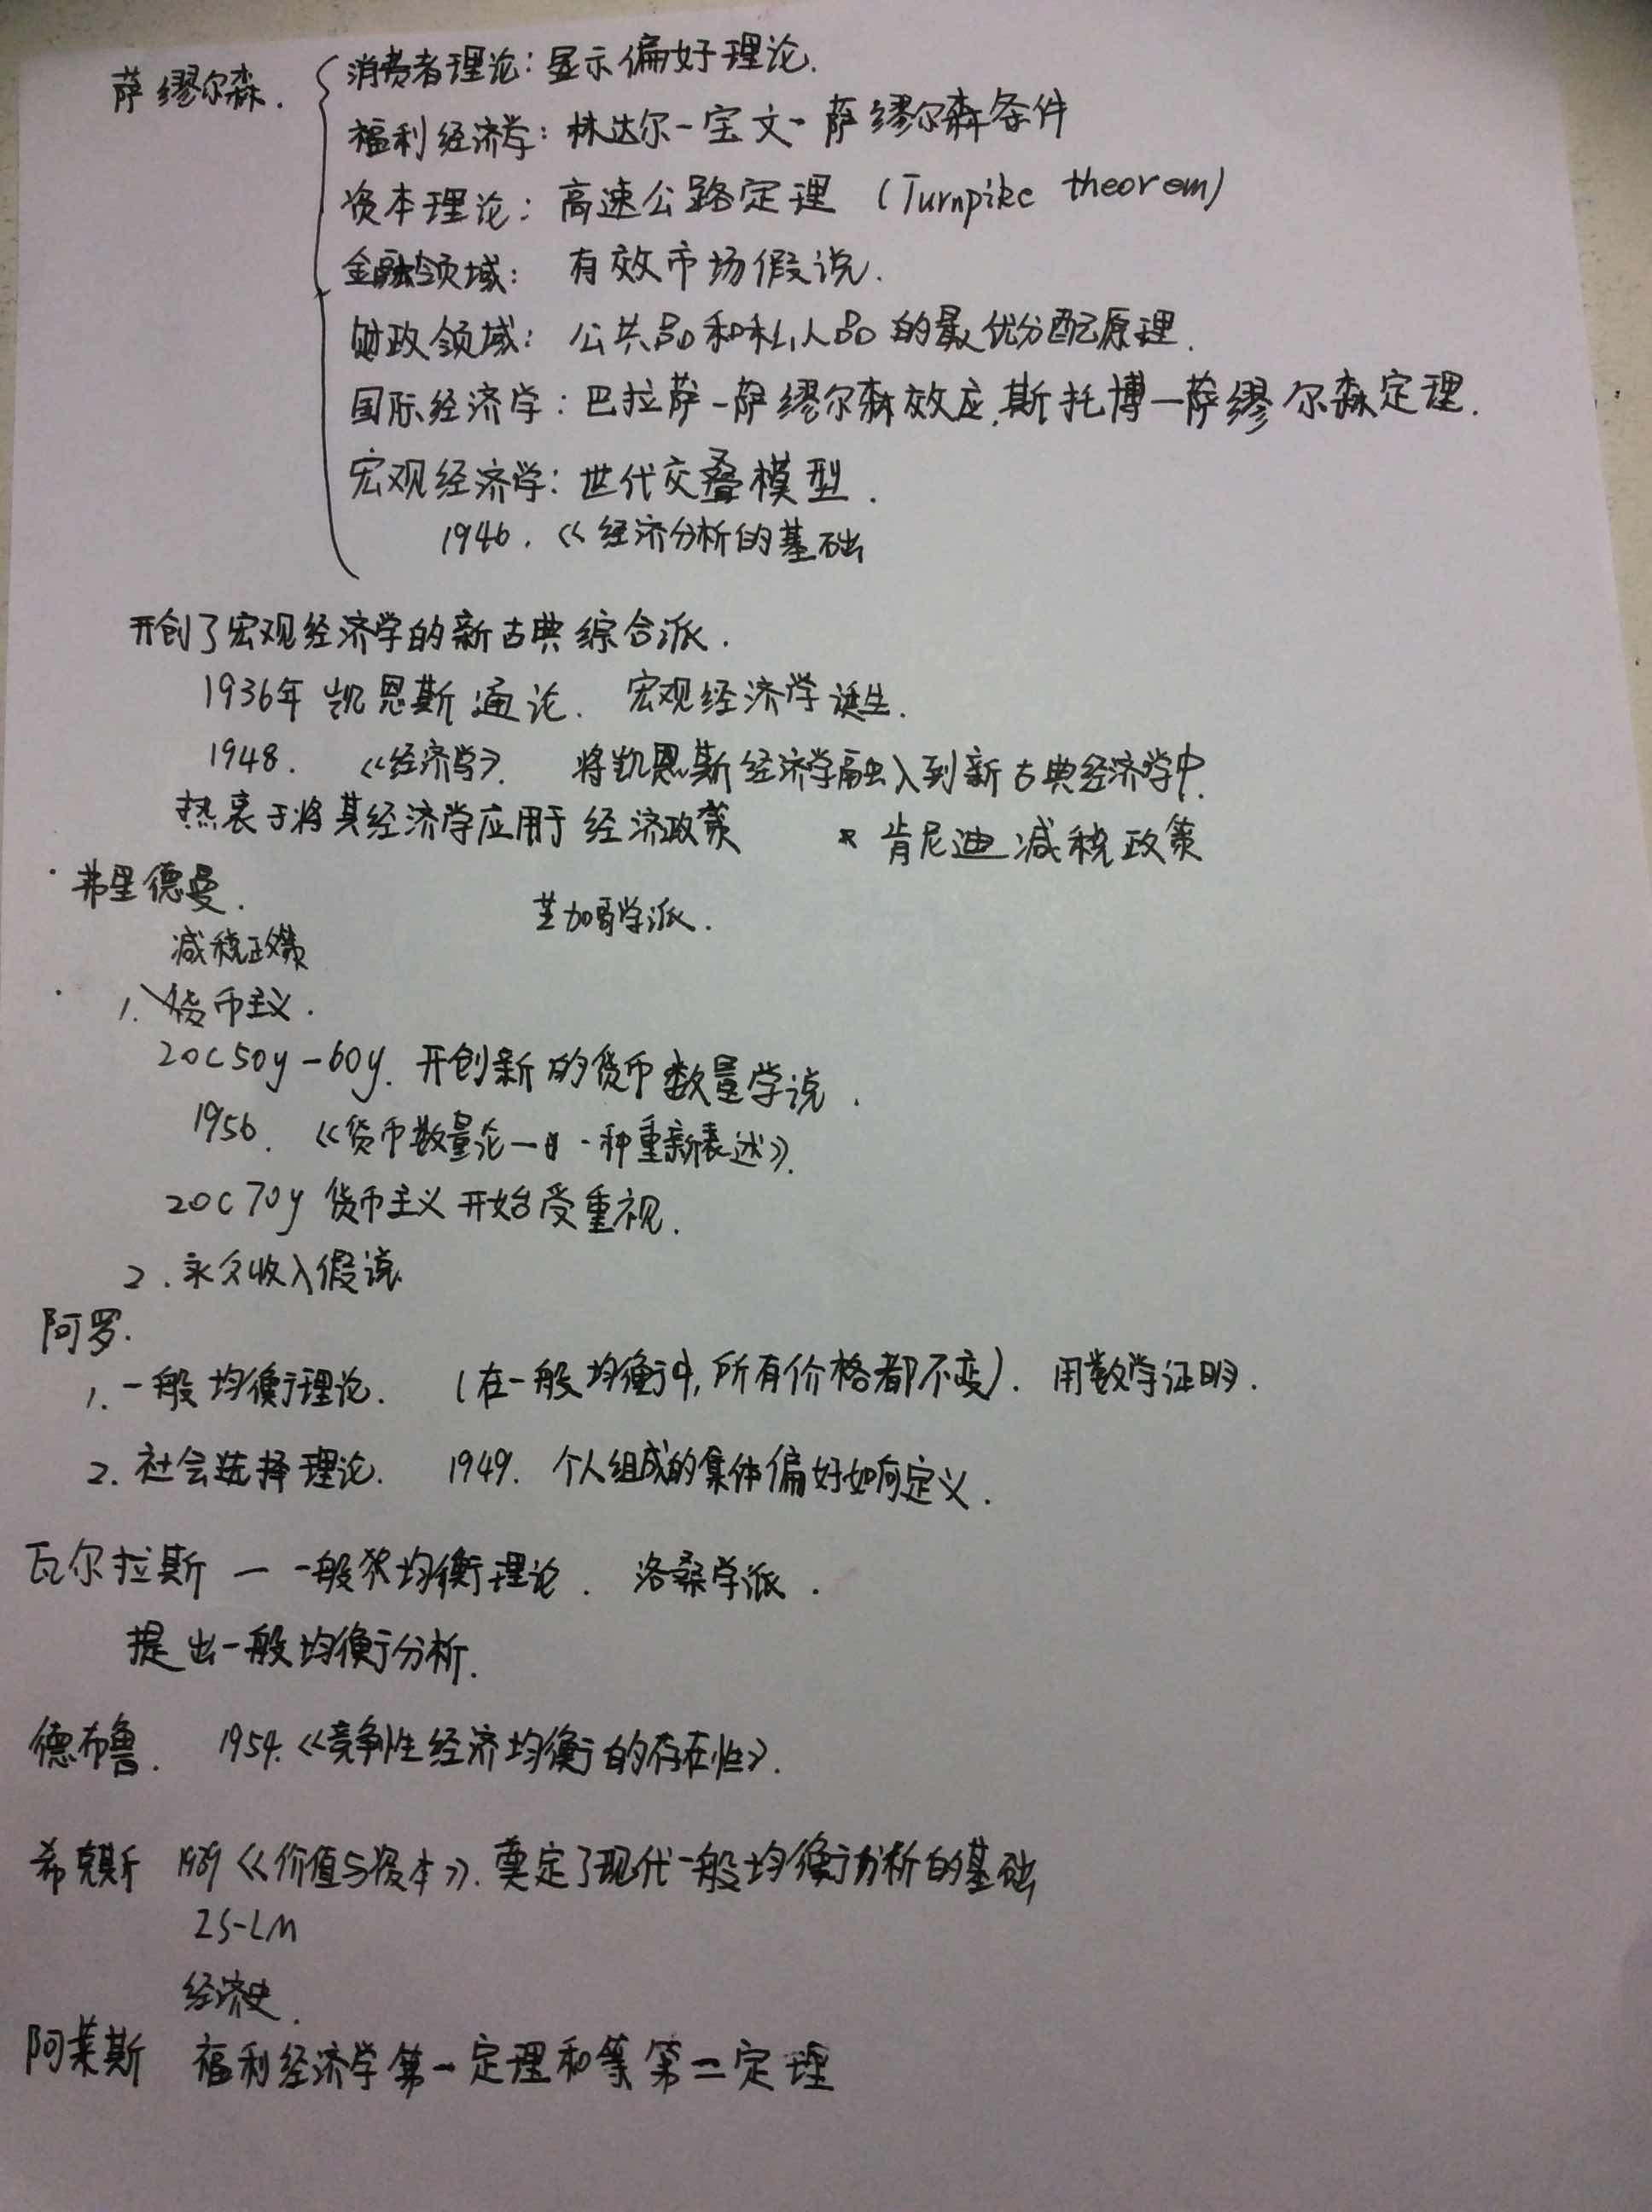 萨缪尔森.
消费者理论: 显示偏好理论.
福利经济学: 林达尔-宝文-萨缪尔森条件
资本理论: 高速公路定理 (Turnpike theorem)
金融领域: 有效市场假说.
财政领域: 公共品和私人品的最优分配原理.
国际经济学: 巴拉萨-萨缪尔森效应. 斯托博-萨缪尔森定理.
宏观经济学: 世代交叠模型.
1946. 《经济分析的基础
开创了宏观经济学的新古典综合派.
1936年 凯恩斯通论. 宏观经济学诞生.
1948. 《经济学》. 将凯恩斯经济学融入到新古典经济学中.
热衷于将其经济学应用于经济政策 * 肯尼迪减税政策
弗里德曼. 芝加哥学派.
减税政策
1. 货币主义.
20c50y-60y. 开创新的货币数量学说.
1956. 《货币数量论一种重新表述》.
20c70y 货币主义开始受重视.
2. 永久收入假说
阿罗.
1. 一般均衡理论. (在一般均衡中, 所有价格都不变). 用数学证明.
2. 社会选择理论. 1949. 个人组成的集体偏好如何定义.
瓦尔拉斯 — 一般均衡理论. 洛桑学派.
提出一般均衡分析.
德布鲁. 1954. 《竞争性经济均衡的存在性》.
希克斯 1939《价值与资本》. 奠定了现代一般均衡分析的基础
IS-LM
经济史.
阿莱斯 福利经济学第一定理和第二定理